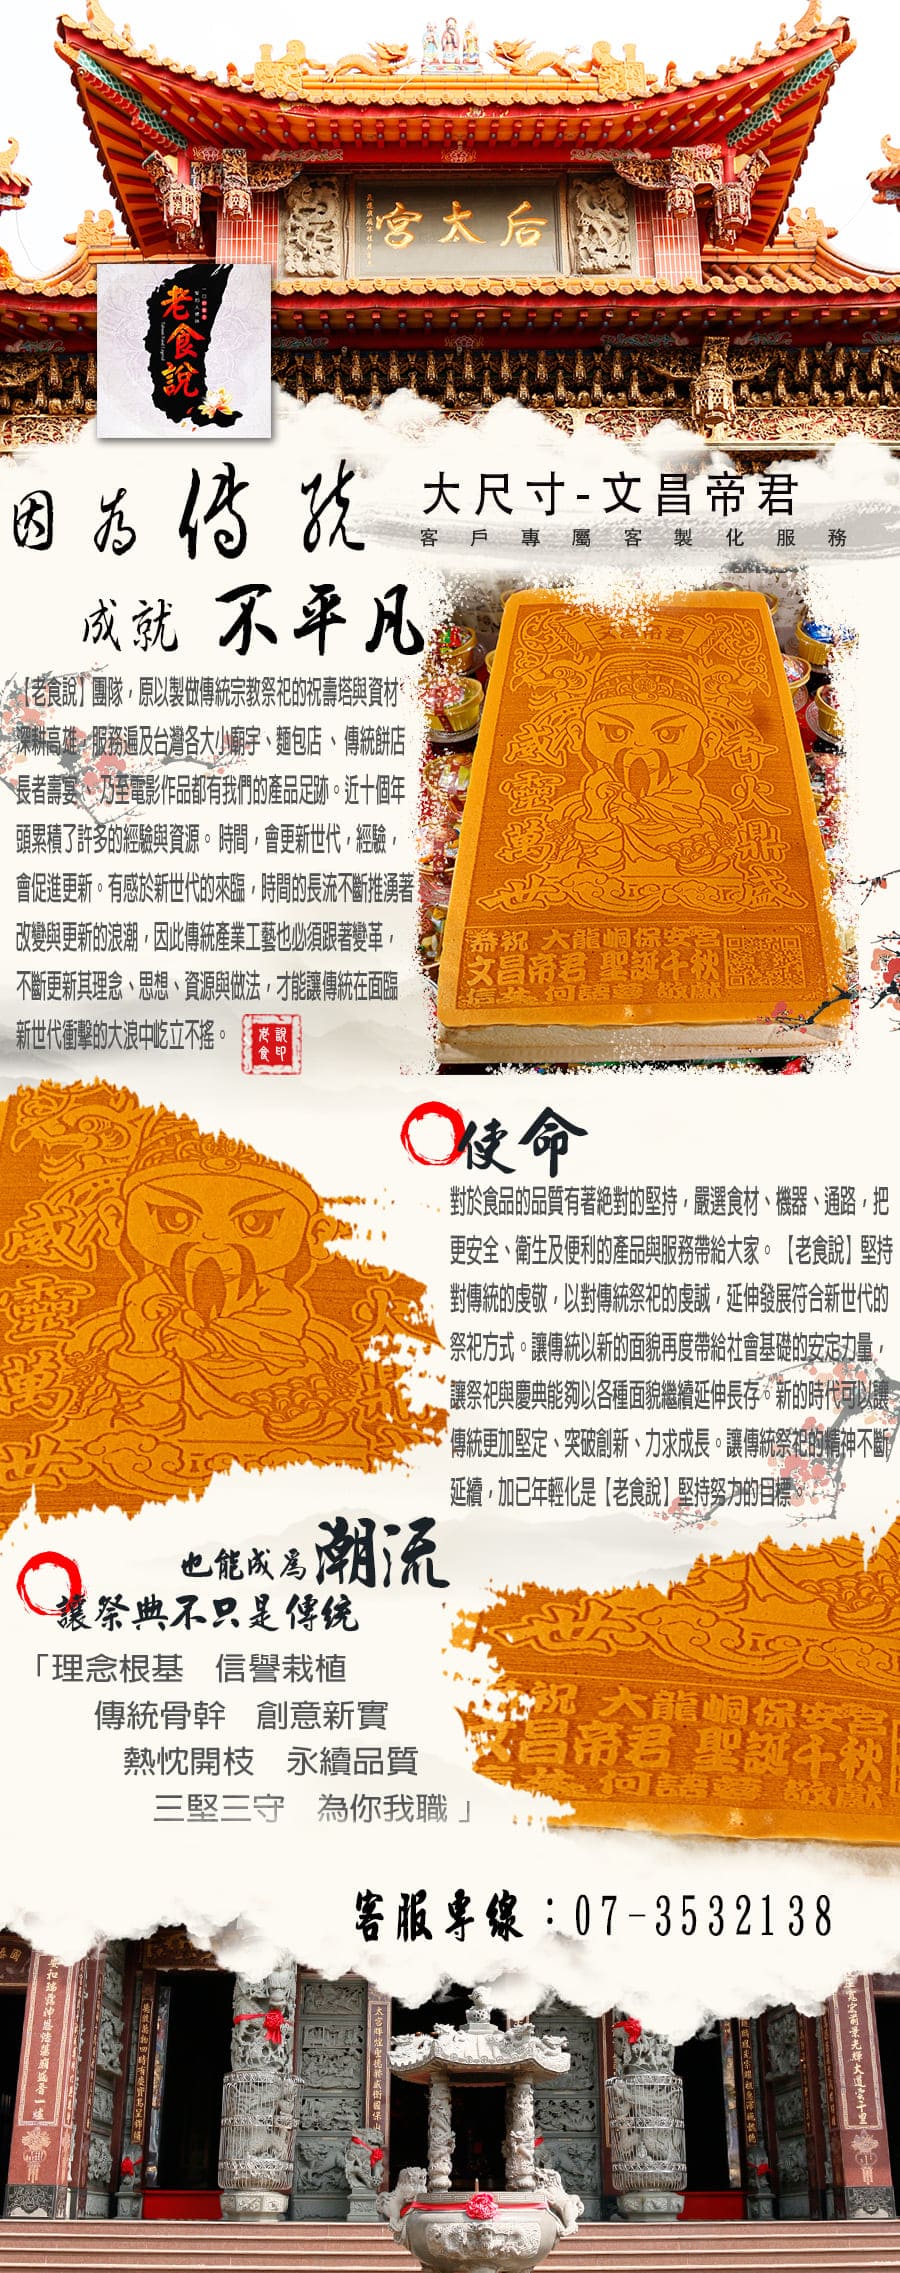 后太宮
老食說
因為傳統
大尺寸-文昌帝君
客戶專屬客製化服務
成就 不平凡
【老食說】團隊，原以製做傳統宗教祭祀的祝壽塔與資材
深耕高雄，服務遍及台灣各大小廟宇、麵包店、傳統餅店
長者壽宴、乃至電影作品都有我們的產品足跡。近十個年
頭累積了許多的經驗與資源。時間，會更新世代，經驗，
會促進更新。有感於新世代的來臨，時間的長流不斷推湧著
改變與更新的浪潮，因此傳統產業工藝也必須跟著變革，
不斷更新其理念、思想、資源與做法，才能讓傳統在面臨
新世代衝擊的大浪中屹立不搖。
老食說印
文昌帝君
威靈萬世
香火鼎盛
恭祝 大龍峒保安宮
文昌帝君 聖誕千秋
敬獻
使命
對於食品的品質有著絕對的堅持，嚴選食材、機器、通路，把
更安全、衛生及便利的產品與服務帶給大家。【老食說】堅持
對傳統的虔敬，以對傳統祭祀的虔誠，延伸發展符合新世代的
祭祀方式。讓傳統以新的面貌再度帶給社會基礎的安定力量，
讓祭祀與慶典能夠以各種面貌繼續延伸長存。新的時代可以讓
傳統更加堅定、突破創新、力求成長。讓傳統祭祀的精神不斷
延續，加已年輕化是【老食說】堅持努力的目標。
威靈萬世
也能成為潮流
讓祭典不只是傳統
「理念根基 信譽栽植
傳統骨幹 創意新實
熱忱開枝 永續品質
三堅三守 為你我職」
世
祝 大龍峒保安宮
文昌帝君 聖誕千秋
敬獻
客服專線：07-3532138